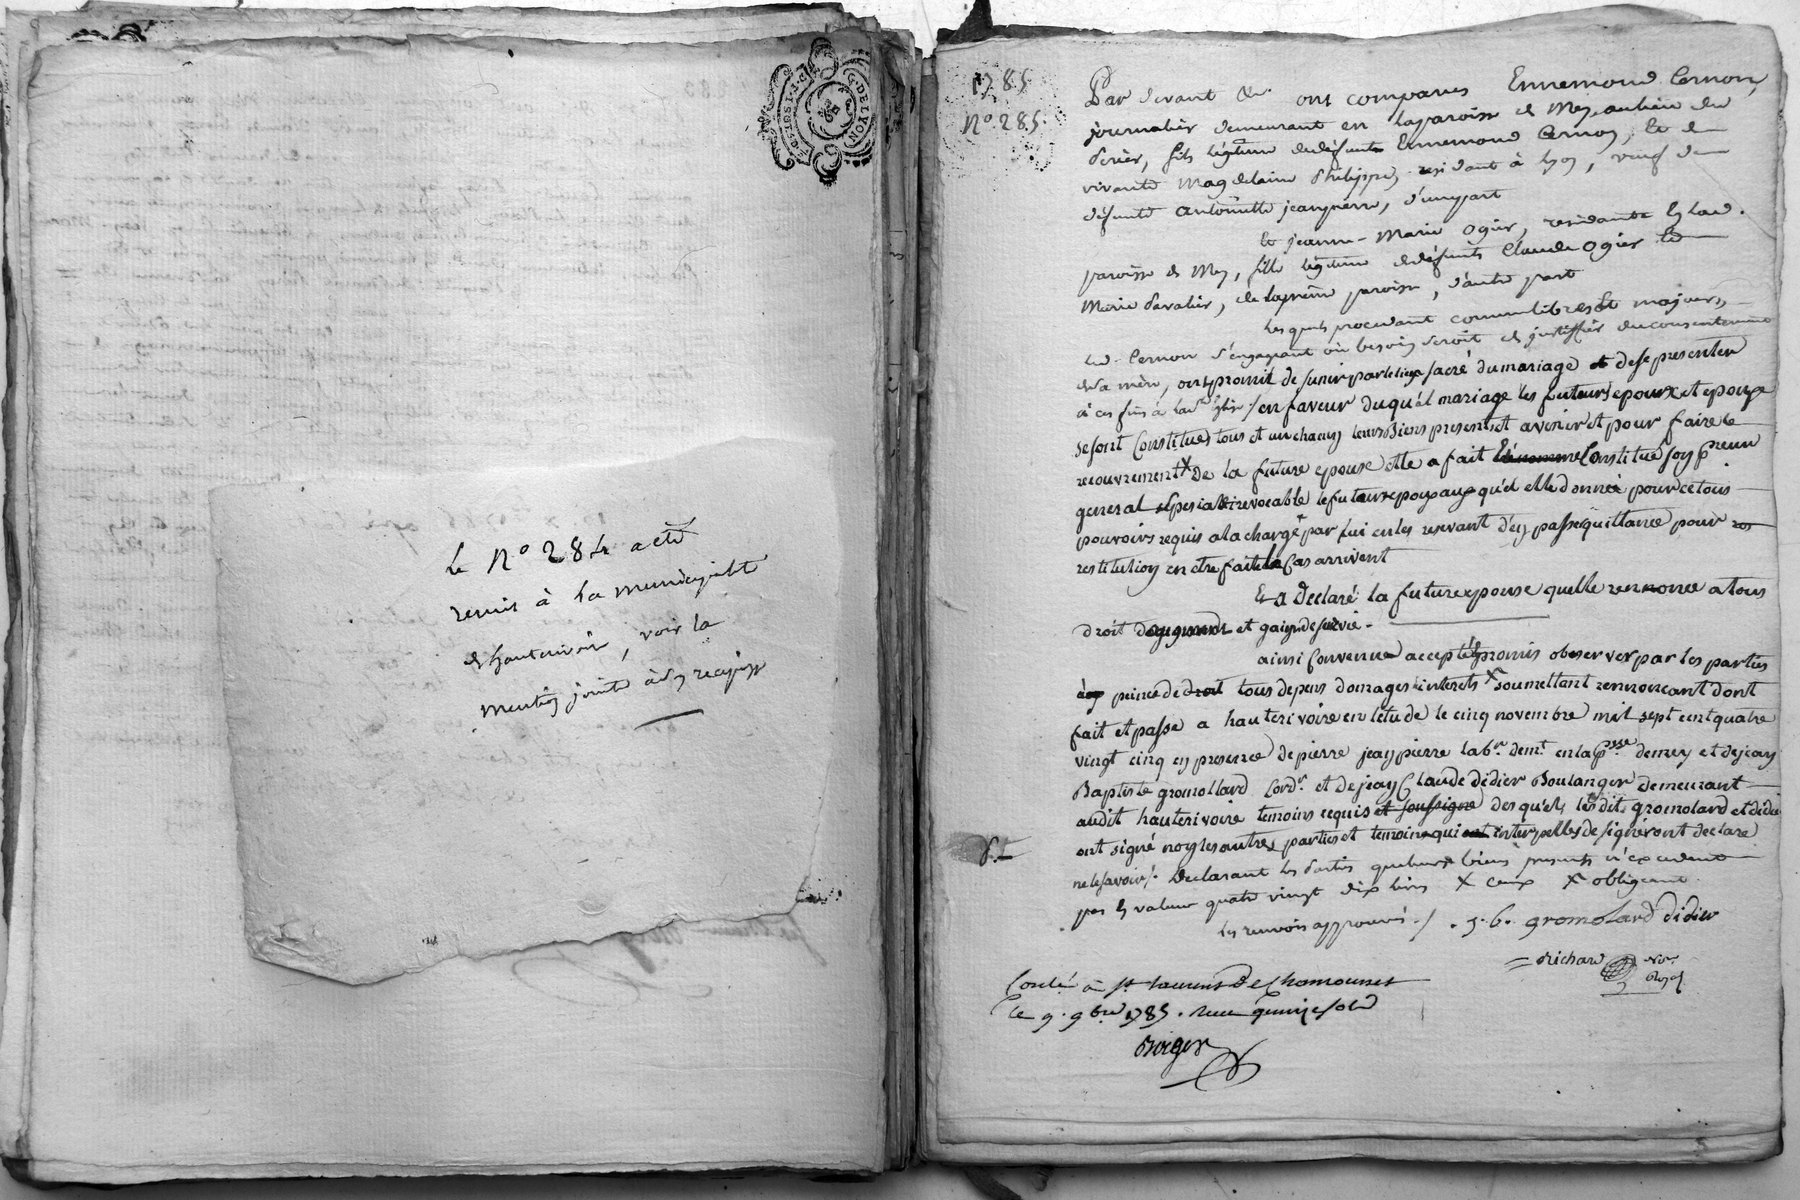 G. DE LYON
Le N° 284 acte
remis à la municipalité
d'hauterivoire, voir la
mention jointe à son récépissé
1785
N°. 285.
Par devant &c. ont comparus Ennemond Cernon,
journalier demeurant en la paroisse de Mey, au lieu du
fils légitime de défunt Ennemond Cernon, et de
vivante Magdelaine Philippe, residant à Lyon, veuf de
défunte Antoinette jeanpierre, d'une part
Et jeanne-Marie Ogier, residante
paroisse de Mey, fille légitime de défunts Claude Ogier et
Marie de la même paroisse, d'autre part
Lesquels procedant comme libres et majeurs,
led. Cernon s'engageant où besoin seroit de justiffier du consentement
de sa mère, ont promit de s'unir par le lien sacré du mariage et de se presenter
à ces fins à lad. église / en faveur duquél mariage les futeurs epoux et epouse
se sont Constitues tous et un chacun leurs Biens presents et avenir et pour faire le
recouvrement X De la future epouse elle a fait Constitué son Preur
general spesial irrevocable le futeur epoux auqu'el elle donne pour ce tous
pouvoirs requis a la charge par lui en les resevant d'en passé quittance pour
restitution en etre fait le Cas arrivent
Et a Declaré la future epouse quelle rennonce a tous
droit d'augment et gain de survie.
ainsi Convenu accepté promis observer par les parties
peine de tous depens domages interets X soumettant rennoncant Dont
fait et passe a hauterivoire en l'etude le cinq novembre mil sept cent quatre
vingt cinq en presence de pierre jeanpierre labr. demt. en la psse de mey et de jean
Baptiste gromollard Cordr. et de jean Claude didier Boulanger demeurant
audit hauterivoire temoins requis et soussigné des qu'els lesdit gromolard et didier
ont signé non les autres parties et temoins qui ont interpellés de signé ront declare
ne le savoir /. Declarant les parties que leurs biens presents n'excedent
pas la valeur quatre vingt dix livres X ceux X obligeant
les renvois approuvés. / . j. b. gromolard didier
Richard Nore. Royal
Conlé à St Laurens De Chamousset
le 9. 9bre 1785. Reçu quinze sols
Berger